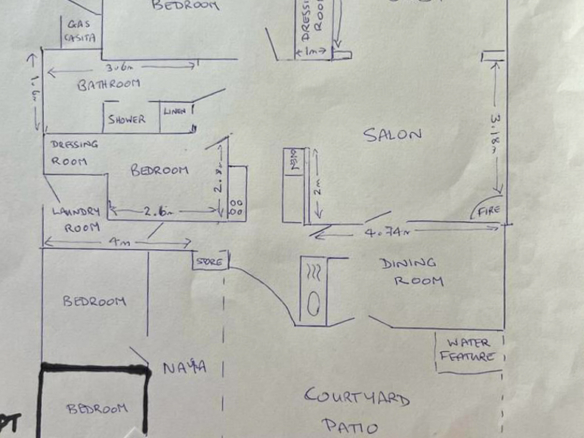 BEDROOM
GAS
CASITA
DRESSING
ROOM
1m
3.6m
BATHROOM
SHOWER
LINEN
3.18m
SALON
DRESSING
ROOM
BEDROOM
2m
2.6m
LAUNDRY
ROOM
FIRE
4.74m
4m
STORE
DINING
ROOM
BEDROOM
WATER
FEATURE
NAYA
BEDROOM
COURTYARD
PATIO
PT